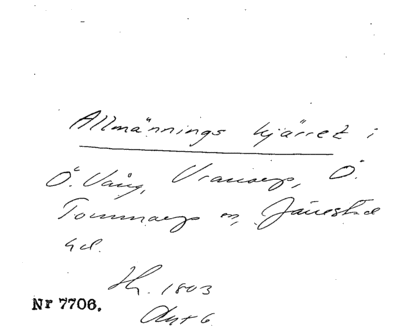 Allmännings kjärret i
Ö. Vång, Vranarp, Ö.
Tommarps o, Järrestad
hd.
Hr. 1803
Akt 6
Nr 7706.